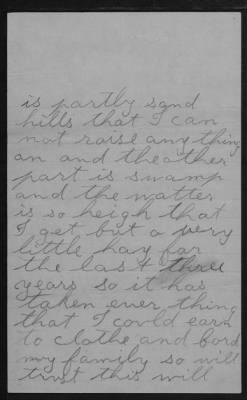 is partly sand
hills that I can
not raise any thing
an and theather
part is swamp
and the watter
is so heigh that
I get but a very
little hay far
the last three
years so it has
taken ever thing
that I could earn
to clathe and bord
my family so will
trust this will